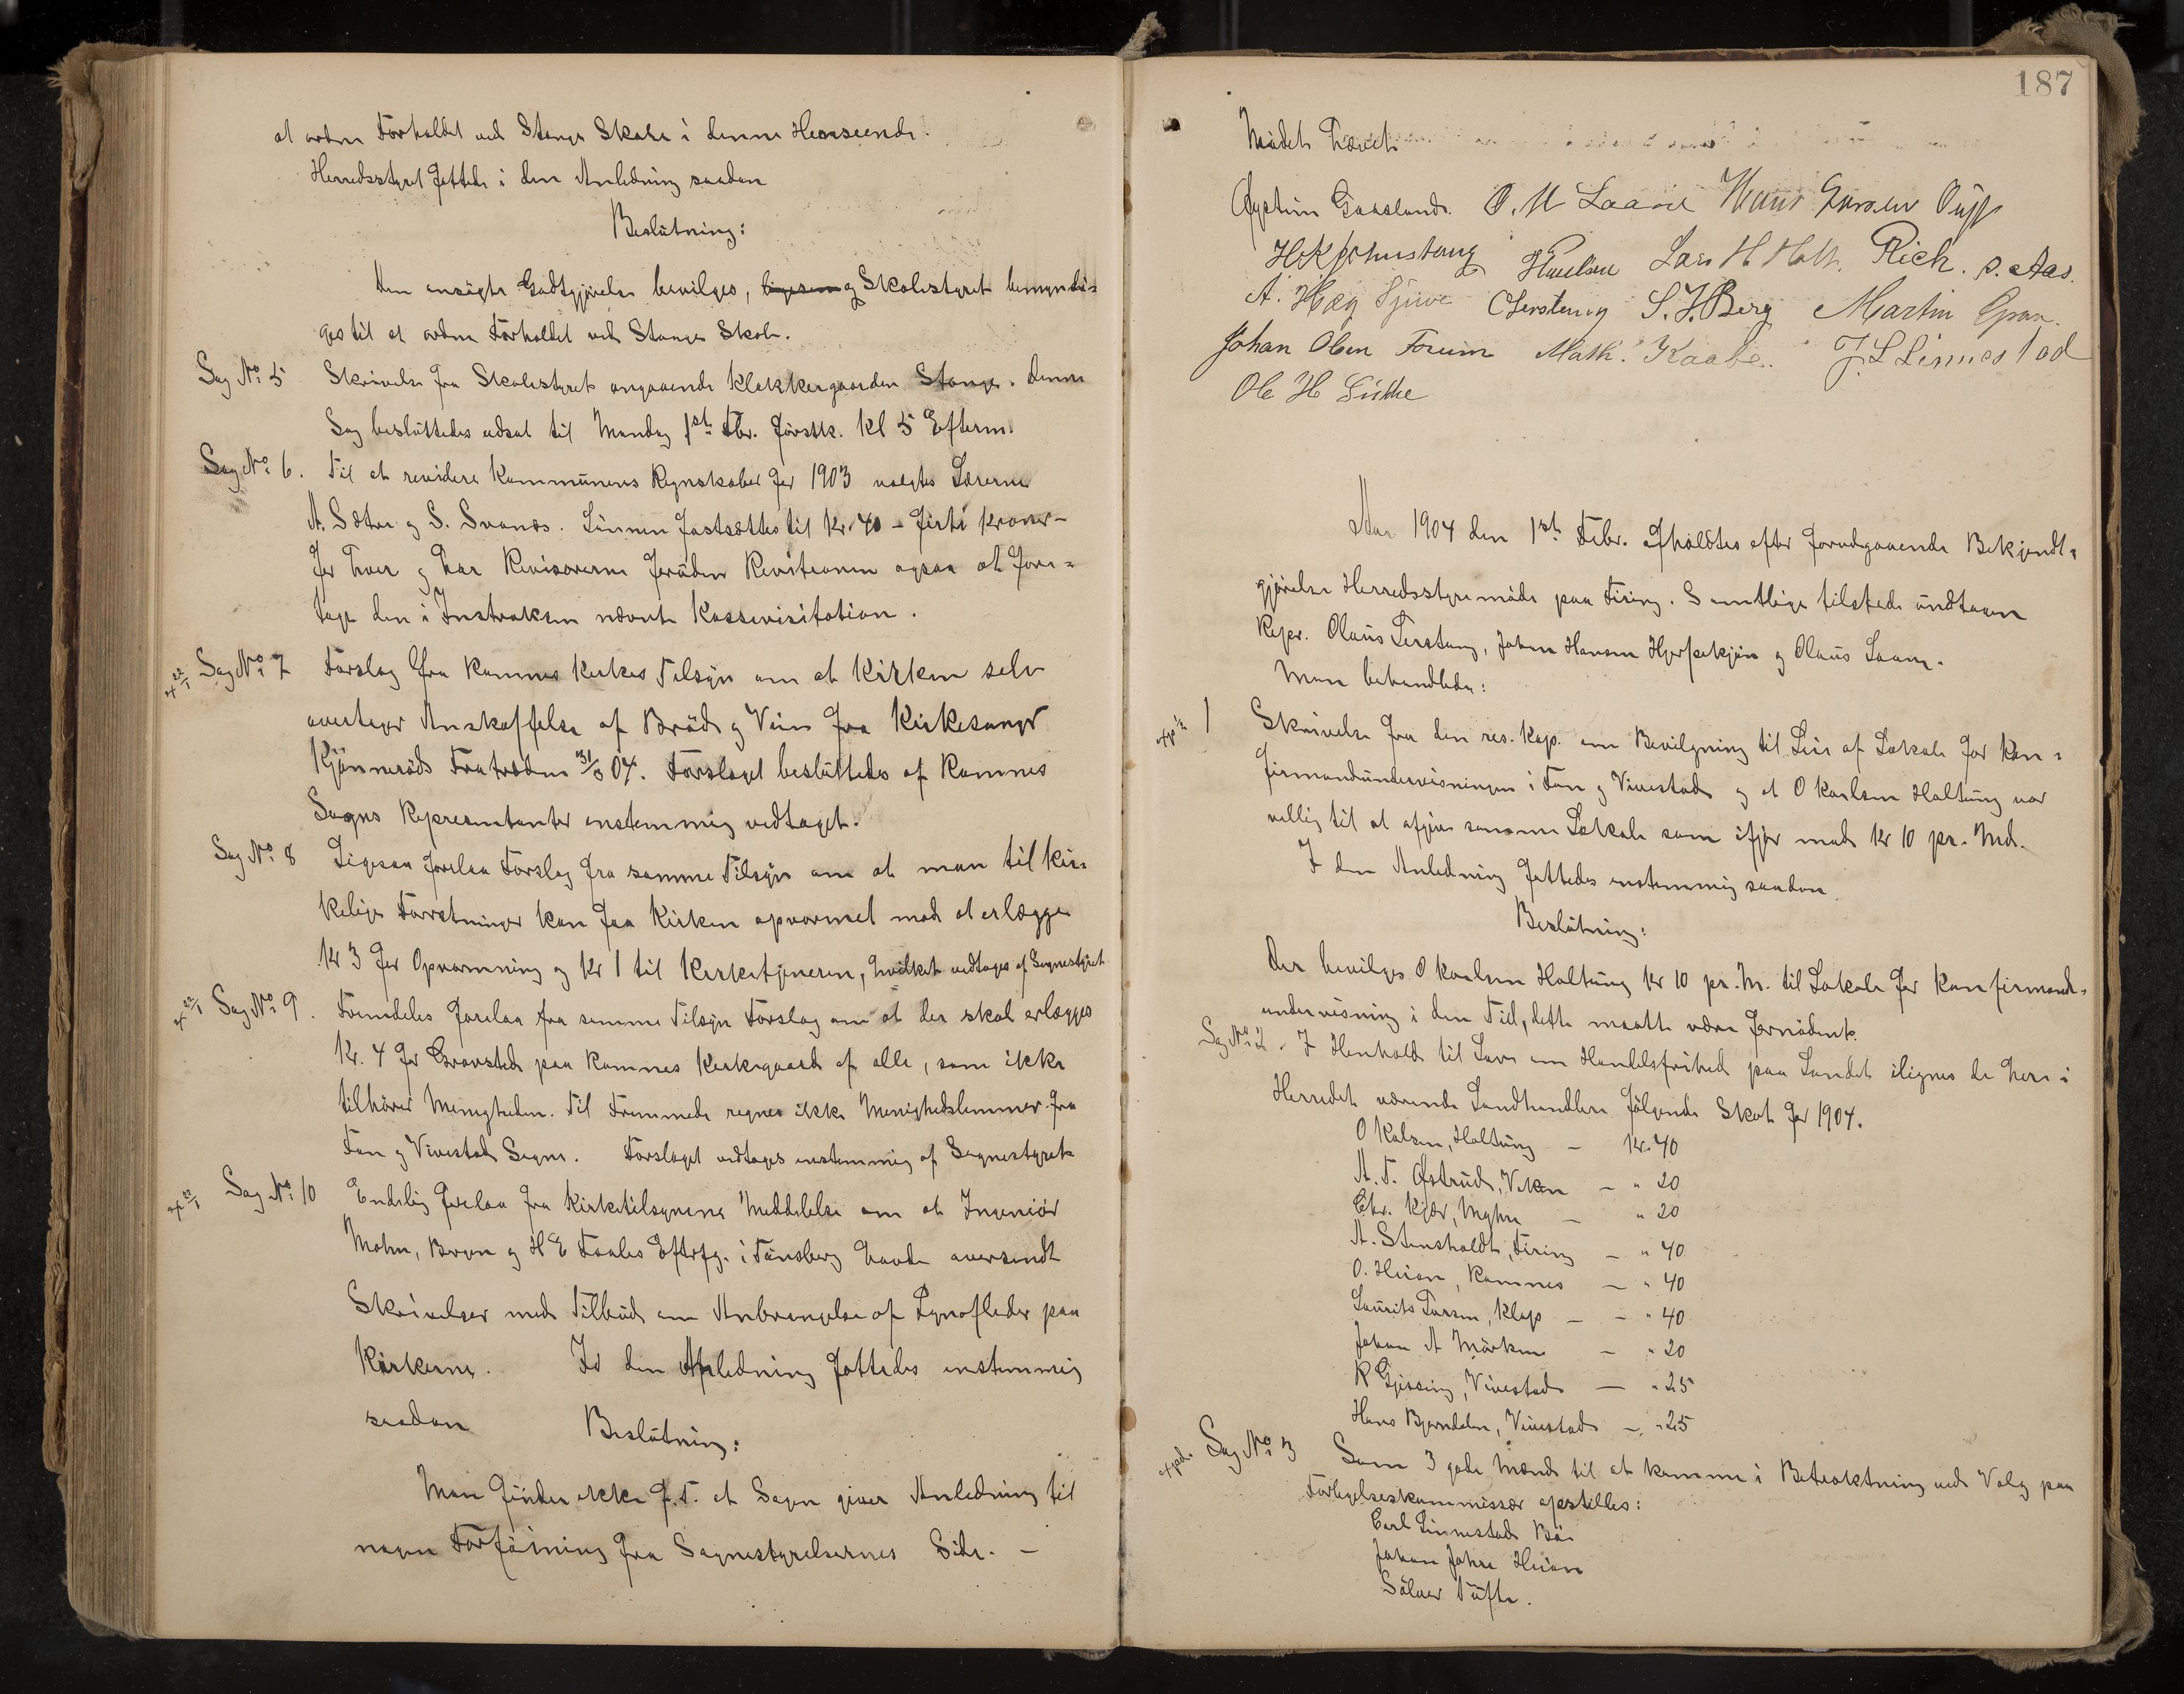 at ordne Forholdet ved Stange Skole i denne Henseende.
Herredsstyret fattede i den Anledning saadan
Beslutning:
Den ansøgte Godtgjørelse bevilges, ligesom og Skolestyret bemyndi-
ges til at ordne Forholdet ved Stange Skole.
Sag No. 5 Skrivelse fra Skolestyret angaaende Klokkergaarden Stange. Denne
Sag besluttedes udsat til Mandag 1st Fbr. førstk. Kl 5 Efterm.
Sag No. 6. Til at revidere Kommunens Regnskaber for 1903 valgtes Lærerne
A. Sætre og S. Svanæs. Lønnen fastsættes til Kr. 40 – firti Kroner –
for hver og har Revisorerne foruden Revisionen ogsaa at fore-
tage den i Instruksen nævnte Kassevisitation.
Sag No. 7 Forslag fra Ramnes Kirkes Tilsyn om at Kirken selv
overtager Anskaffelse af Brød og Vin fra Kirkesanger
Kjønnerøds Fratræden 31/3 04. Forslaget besluttedes af Ramnes
Sogns Repræsentanter enstemmig vedtaget.
Sag No. 8 Ligesaa forelaa Forslag fra samme Tilsyn om at man til kir-
kelige Forretninger kan faa Kirken opvarmet mod at erlægge
Kr 3 for Opvarmning og Kr 1 til Kirketjeneren, hvilket vedtages af Sognestyret.
Sag No. 9. Fremdeles forelaa fra samme Tilsyn Forslag om at der skal erlægges
Kr. 4 for Gravsted paa Ramnes Kirkegaard af alle, som ikke
tilhører Menigheden. Til Fremmede regnes ikke Menighedslemmer fra
Fon og Vivestad Sogne. Forslaget vedtages enstemmig af Sognestyret.
Sag No. 10 Endelig forelaa fra Kirketilsynene Meddelelse om at Ingeniør
Mohn, Bergen og H E Foales Eftrfg. i Tønsberg havde oversendt
Skrivelser med Tilbud om Anbringelse af Lynafleder paa
Kirkerne. I den Anledning fattedes enstemmig
saadan Beslutning:
Man finder ikke f. T. at Sagen giver Anledning til
nogen Forføining fra Sognestyrelsernes Side. –
187
Mødet hævet.
Øystein Gaaslund. O. M Laane Hans Hansen
Lars H Holt. Rich. P. Aas.
A. Hæg S. J. Berg Martin Gran.
Johan Olsen Freum Math. Kaabe. J. L Linnestad
Ole H
Aar 1904 den 1st Febr. afholdtes efter forudgaaende Bekjendt-
gjørelse Herredsstyremøde paa Firing. Samtlige tilstede undtagen
Repr. Olaus Lerstang, Johan Hansen Hjerpekjøn og Olaus Laane.
Man behandlede:
1 Skrivelse fra den res. Kap. om Bevilgning til Leie af Lokale for Kon-
firmandundervisningen i Fon og Vivestad og at O Karlsen Haltung var
villig til at afgive samme Lokale som ifjor mod Kr 10 pr. Md.
I den Anledning fattedes enstemmig saadan
Beslutning:
Der bevilges O Karlsen Haltung Kr 10 pr. M. til Lokale for Konfirmand-
undervisning i den Tid, dette maatte være fornødent.
Sag No. 2. I Henhold til Lov om Handelsfrihed paa Landet ilignes de her i
Herredet værende Landhandlere følgende Skat for 1904.
O Kalsen, Haltung – Kr. 40
A. T. Østrud, Viken – " 20
Chr. Kjær, Myhre – " 20
A. Stensholdt, Firing – " 40
O. Hvian, Ramnes – " 40
Laurits Larsen, Klop – – " 40
Johan A Mørken – " 20
R Gjessing, Vivestad – " 25
Hans Bjørndalen, Vivestad – " 25
exped. Sag No. 3 Som 3 gode Mænd til at komme i Betraktning ved Valg paa
Forligelseskommissær opstilles:
Carl Linnestad Bø
Johan Jahre Hvian
Sølver Tufte.